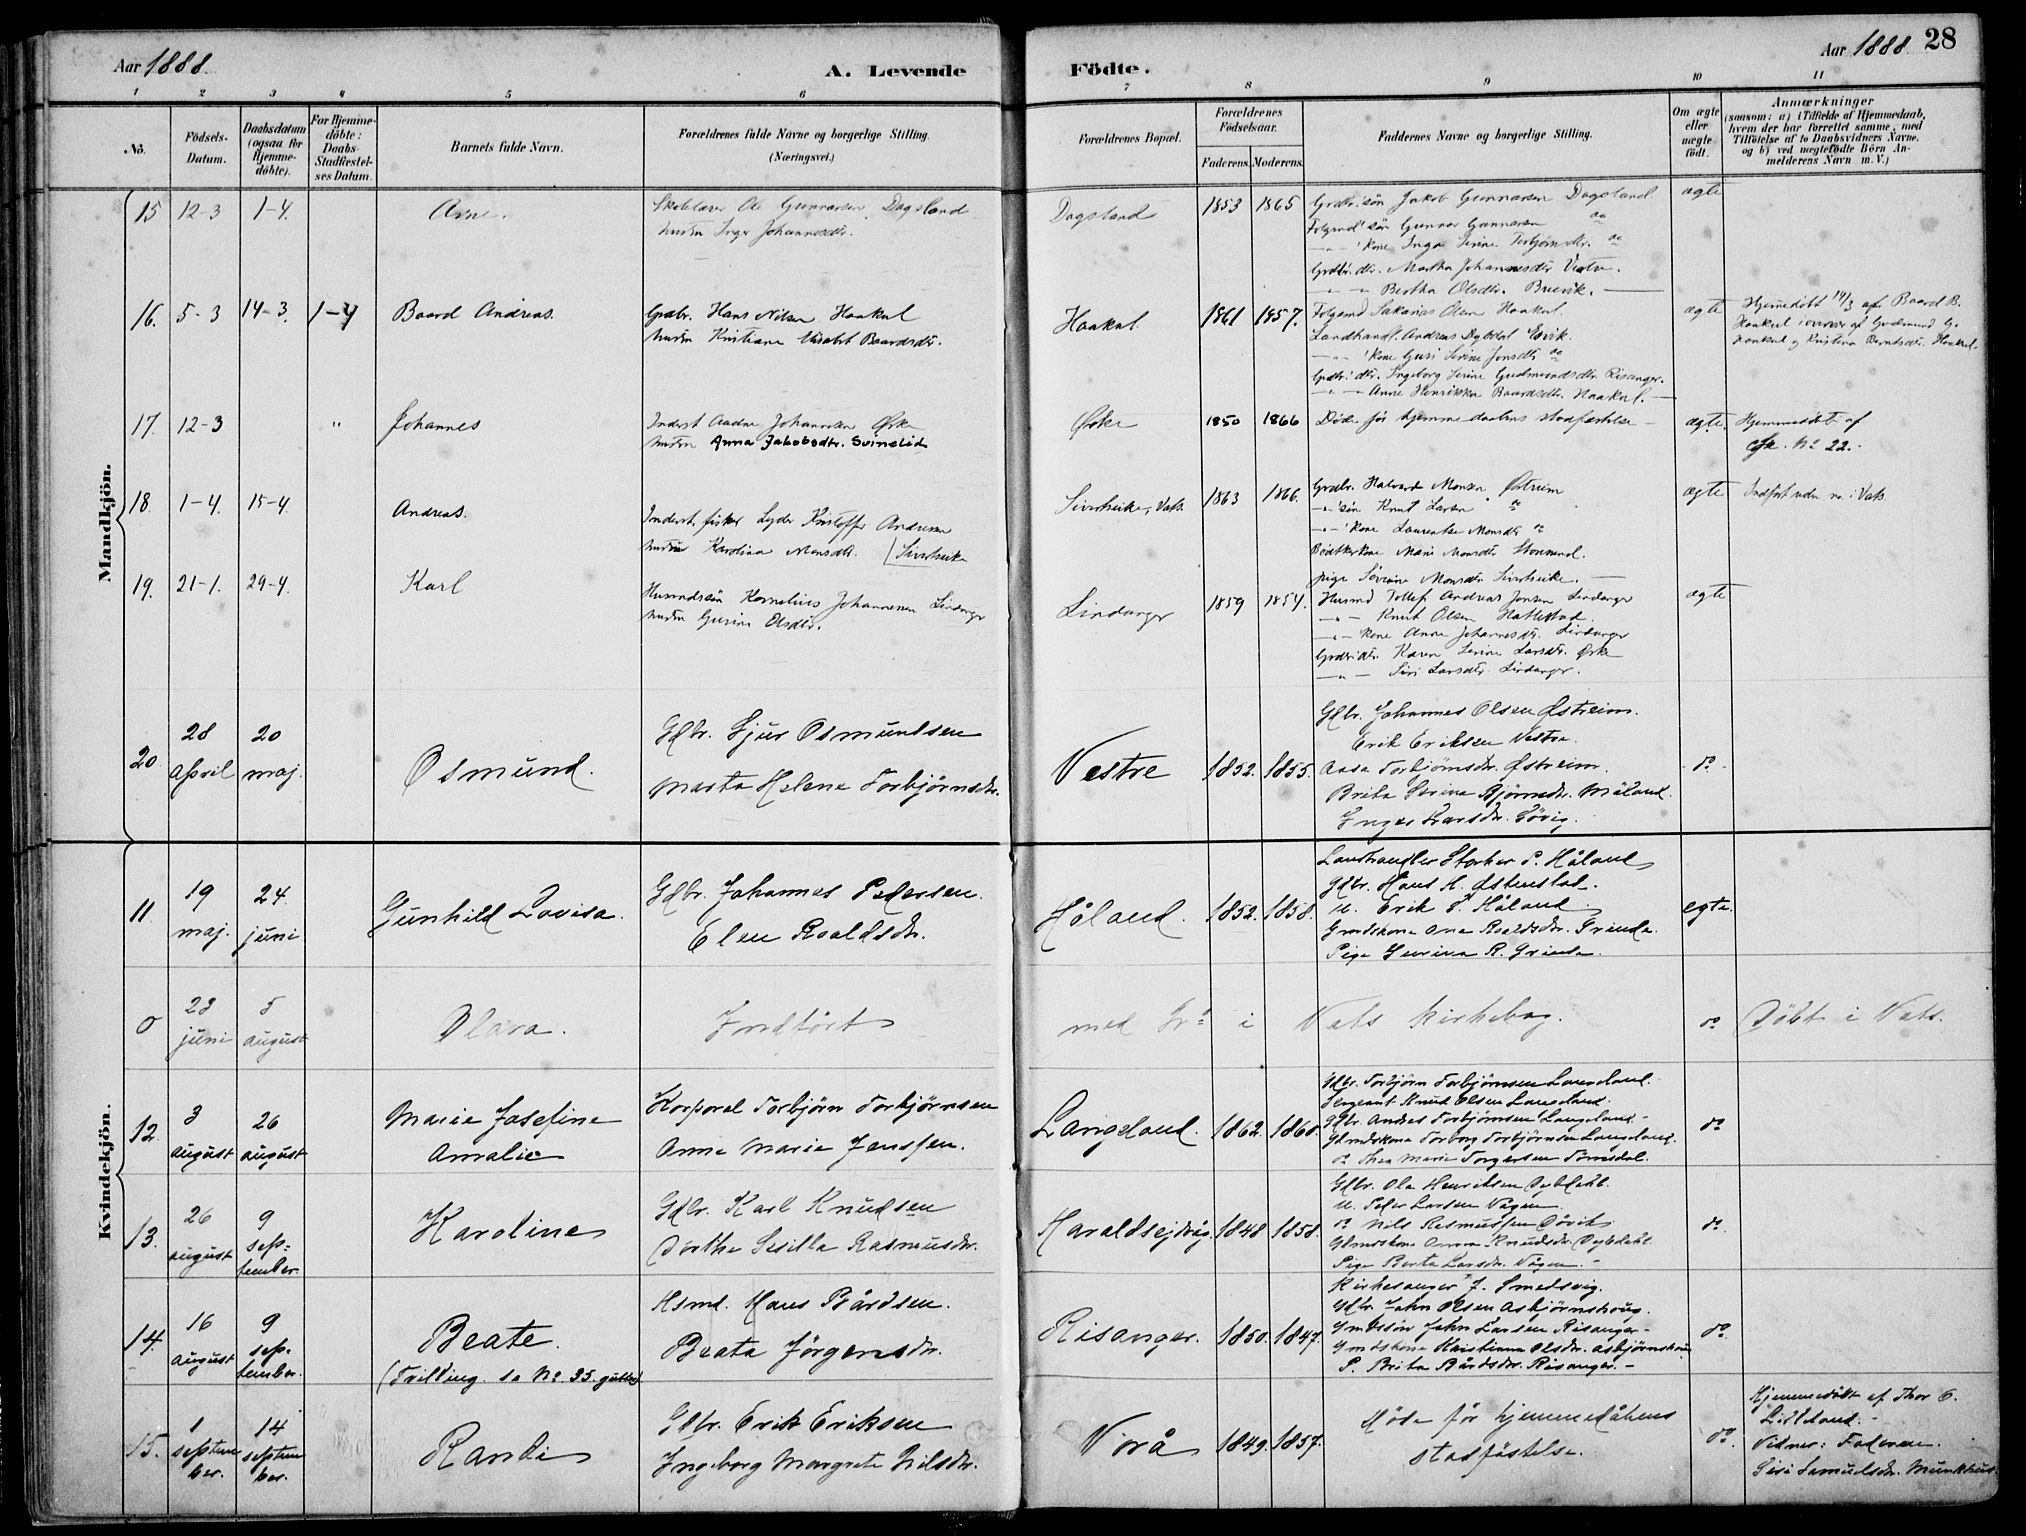 Aar 1888.
A. Levende
Födte.
Aar 1888. 28
1 2 3 4 5 6 7 8 9 10 11
No.
Födsels-Datum.
Daabsdatum (ogsaa for Hjemme-döbte).
For Hjemme-döbte: Daabs-Stadfæstel-ses Datum.
Barnets fulde Navn.
Forældrenes fulde Navne og borgerlige Stilling.
(Næringsvei.)
Forældrenes Bopæl.
Forældrenes Födselsaar.
Faderens. Moderens.
Faddernes Navne og borgerlige Stilling.
Om ægte eller uægte født.
Anmærkninger
(saasom: a) i Tilfælde af Hjemmedaab, hvem der har forrettet samme, med Tilföielse af to Daabsvidners Navne, og b) ved uægtefödte Börn An-melderens Navn m. V.)
Mandkjön.
15 12-3 1-4. Arne.
Skolelærer Ole Gunnarsen Dagsland
hustru Inger Johannesdtr.
Dagsland 1853 1865
Grdbr. søn Jakob Gunnarsen Dagsland
Folgmd' søn Gunnar Gunnarsen do
-"- 'kone Inga Serine Torbjørnsdtr. do
Grdbr. dtr. Martha Johannesdtr Vestre.
-"- -"- Bertha Olsdtr. Brevik.
ægte
16. 5-3 14-3. 1-4 Baard Andreas.
Grdbr. Hans Nilsen Haakul
hustru Kristiane Elisabet Baardsdtr.
Haakul 1861 1857.
Folgemd Sakarias Olsen Haakul.
Landhandl. Andreas Dybdal Ervik.
-"- 'kone Guri Serine Jonsdtr do
Grdbr: dtr. Ingeborg Serine Gudmundsdtr Risanger.
-"- -"- Anne Henrikka Baardsdtr. Haakul.
ægte
Hjemmedöbt 14/3 af Baard B.
Haakul i overvær af Gudmund G.
Haakul og Kristina Berntsdtr. Haakul.
17. 12-3 " Johannes
Inderst Aadne Johannesen Ørke
hustru Anna Jakobsdtr. Svinelid
Ørke 1850 1866
Døde før hjemmedaabens stadfæstelse
ægte.
Hjemmedöbt af
Cfr. No 22.
18. 1-4. 15-4 Andreas.
Inderst, fisker Lyder Kristoffer Andresen
hustru Karolina Monsdtr. Sivertsvike
Sivertsvike, Vats. 1863 1866.
Grdbr. Halvard Monsen Østreim
-"- 'søn Knut Larsen do
-"- 'kone Laurentse Monsdtr do
Bødkerkone Marie Monsdtr
pige Severine Monsdtr Sivertsvike.
ægte
Indført uden no. i Vats.
19. 21-1. 29-4. Karl
Husmdssøn Kornelius Johannesen Lindanger
hustru Gurine Olsdtr.
Lindanger 1859 1854.
Husmd Tollef Andreas Jonsen Lindanger
-"- Knut Olsen Hatlestad.
-"- 'kone Anna Johannesdtr. Lindanger
Grdbr:dtr. Karen Serine Larsdtr. Ørke
-"- -"- Siri Larsdtr. Lindanger.
ægte
20 28 April 20 maj. Osmund.
Gdbr. Sjur Osmundsen
Marta Helene Torbjørnsdtr.
Vestre 1852. 1855.
Gdbr. Johannes Olsen Østreim.
Erik Eriksen Vestre.
Aasa Torbjørnsdtr. Østreim.
Brita Serina Bjørnsdtr. Måland.
Inger Larsdtr. Løvig.
do.
Kvindekjön.
11. 19 maj. 24. juni Gunhild Lovisa.
Gdbr. Johannes Pedersen.
Elen Roaldsdtr.
Håland. 1852. 1858.
Landhandler Storker P. Håland
Gdbr. Hans H. Østenstad.
u. Erik P. Håland
Grmdskone Ane Roaldsdtr. Grinde.
Pige Serina R. Grinde.
egte.
0 23 juni 5 august Olava.
Indført med Nr. i Vats Kirkebog.
do
Döbt i Vats.
12. 3 august 26 august Marie Josefine
Amalie
Korporal Torbjørn Torbjørnsen
Anne Marie Jenssen.
Langeland. 1862. 1860.
Gdbr. Torbjörn Torbjörnsen Langeland.
Sergeant Knud Olsen Langeland.
Gdbr. Anders Torbjörnsen Langeland.
Gmdskone Torborg Torbjörnsen Langeland.
do Thea Marie Torgersen Tömsdal.
do
13. 26 august 9 sep-tember. Karoline
Gdbr. Karl Knudsen
Dorthe Sesilla Rasmusdtr.
Haraldsejdvåg. 1848 1858.
Gdbr. Ole Henriksen Dybdahl.
u. Peder Larsen Vågen.
do Nils Rasmussen Dövik
Gmdskone Anna Knudsdtr. Dybdahl.
Pige Berta Larsdtr. Vågen.
do.
14. 16 august 9 sep-tember. Beate.
(Tvilling. se No. 35. gutter)
Hsmd. Hans Bårdsen.
Beata Jörgensdtr.
Risanger. 1850. 1847.
Kirkesanger J. Smedsvig.
Gdbr. John Olsen Asbjørnshoug.
Gmdssön John Larsen Risanger.
Gmdskone Kristiana Olsdtr. Asbjørnshoug
P. Brita Bårdsdtr. Risanger.
do.
15. 1 septem ber. 14 septem ber. Randi
Gdbr. Erik Eriksen
Ingeborg Margrete Nilsdtr.
Norå 1849. 1857.
Døde før hjemmedåbens
stadfæstelse.
do.
Hjemmedöbt af Thor E.
Lilleland.
Vidner: Faderen.
Siri Samuelsdtr. Munkhus.